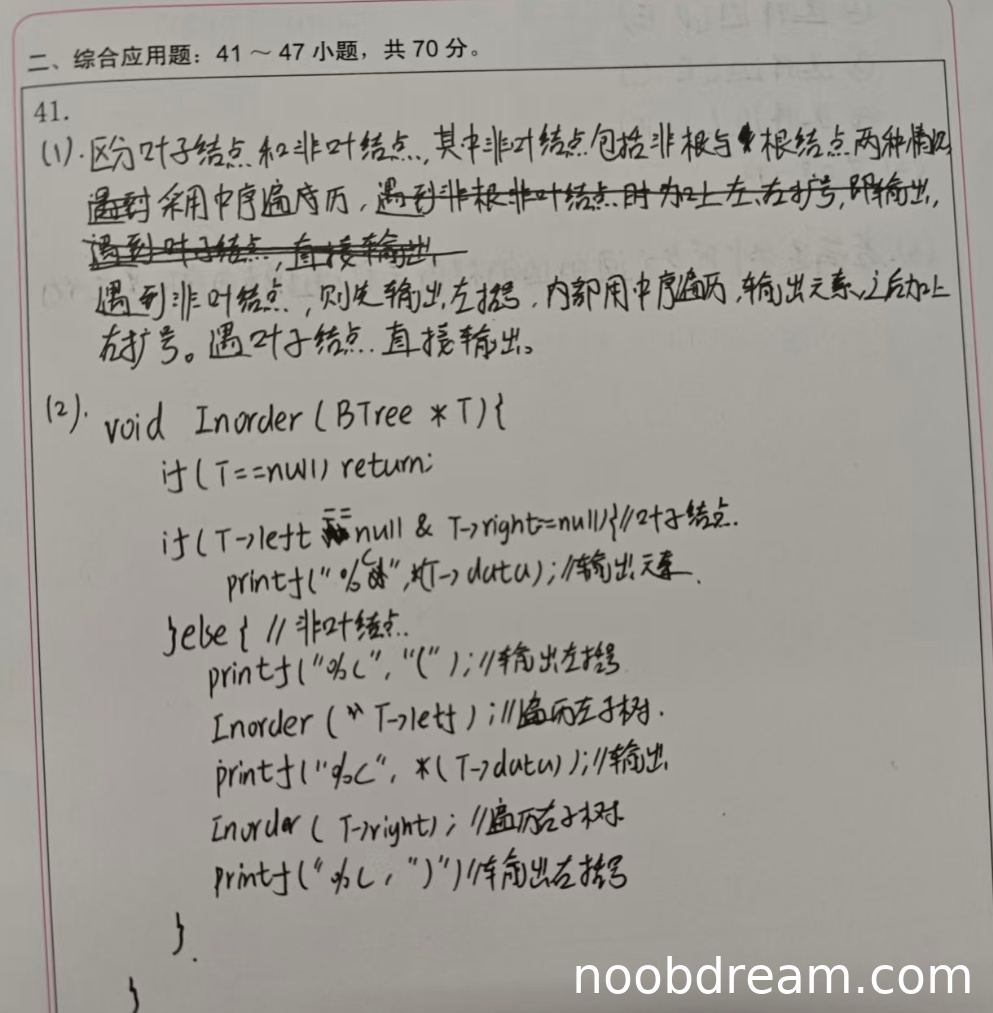 二、综合应用题：41 ～ 47 小题，共 70 分。
41.
(1). 区分叶子结点和非叶结点,其中非叶结点包括非根与根结点两种情况
遇到采用中序遍序历,遇到非根非叶结点时加上左、右扩号,即输出,
遇到叶子结点,直接输出
遇到非叶结点,则先输出左括号,内部用中序遍历,输出元素,之后加上
右扩号。遇叶子结点.直接输出。
(2). void Inorder (BTree *T){
if(T==null) return;
if(T->left == null & T->right==null){//叶子结点.
printf("%c",*(T->data);//输出元素.
}else{ //非叶结点.
printf("%c","(");//输出左括号
Inorder ( T->left);//遍历左子树.
printf("%c", *(T->data));//输出
Inorder ( T->right); //遍历右子树
printf("%c,")")//输出右括号
}.
}
noobdream.com